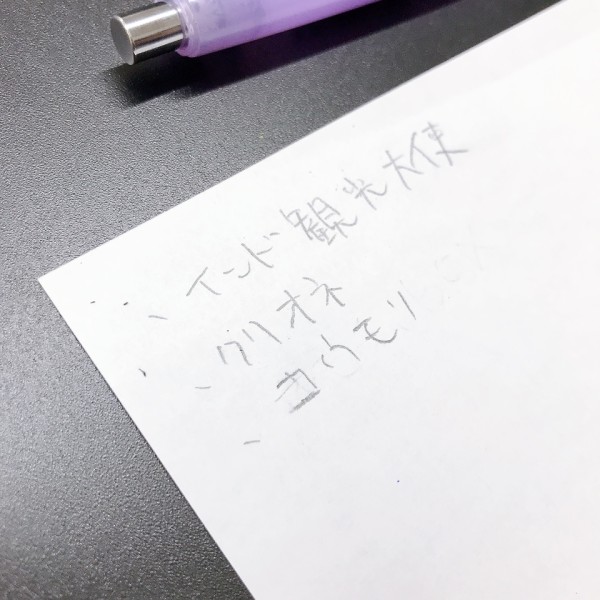 、インド観光大使
、クリオネ
、コウモリ